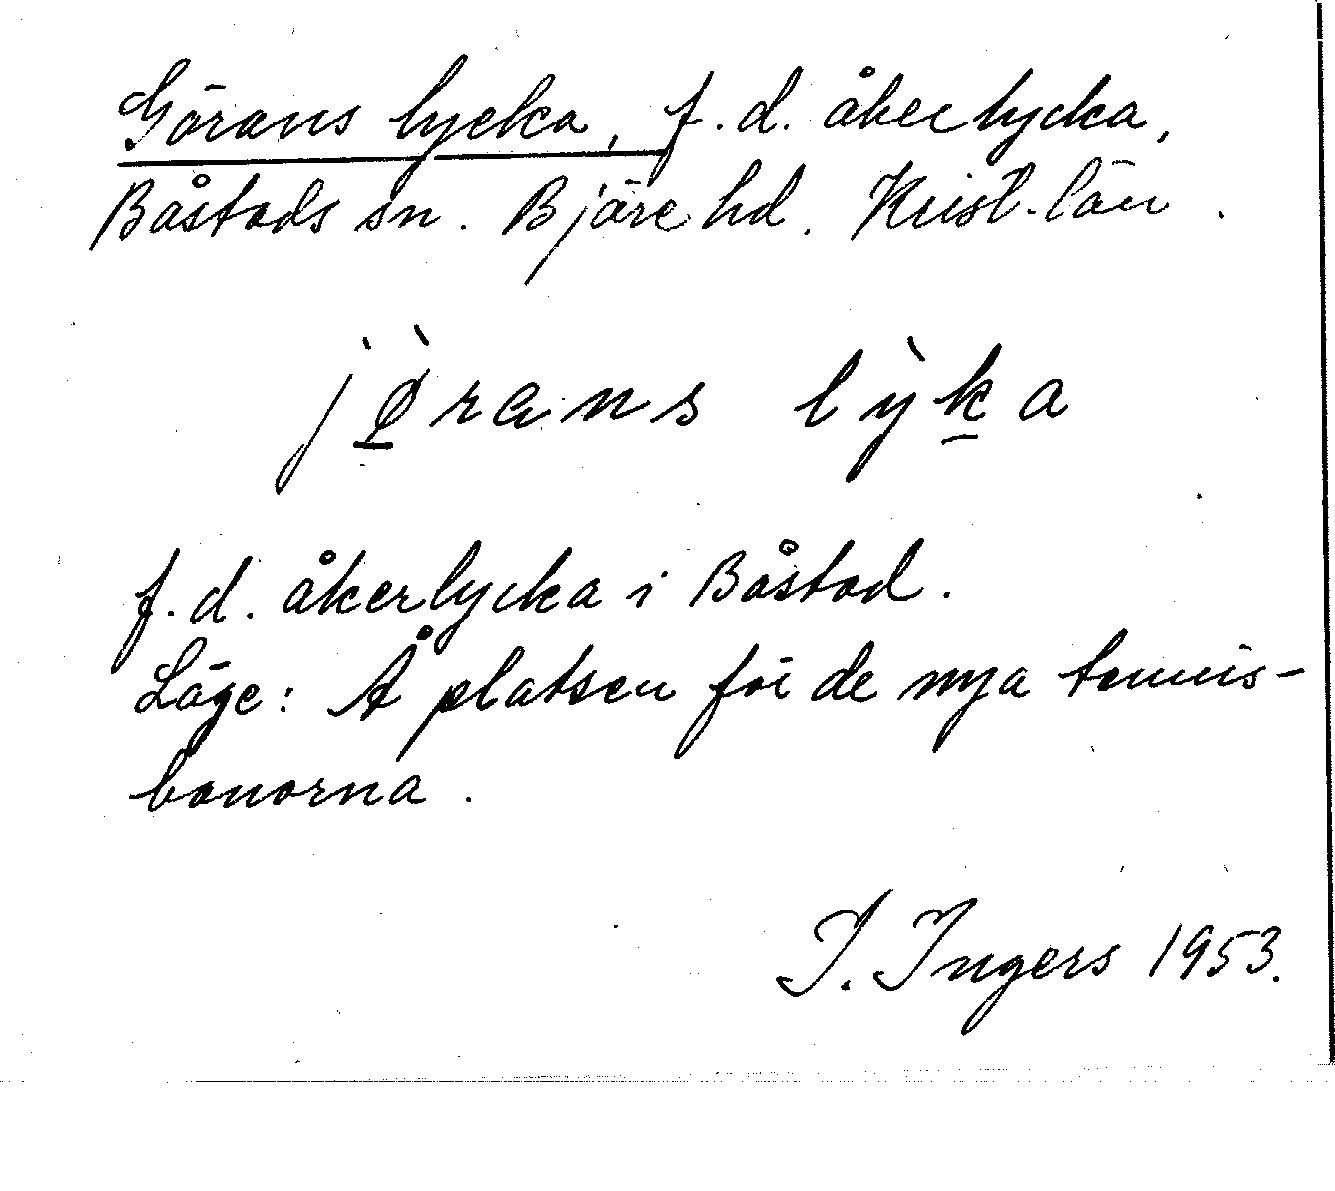 Görans lycka, f.d. åkerlycka,
Båstads sn. Bjäre hd. Krist. län.
jø̲̀rans lỳk̲a
f.d. åkerlycka i Båstad.
Läge: Å platsen för de nya tennis-
banorna.
I. Ingers 1953.